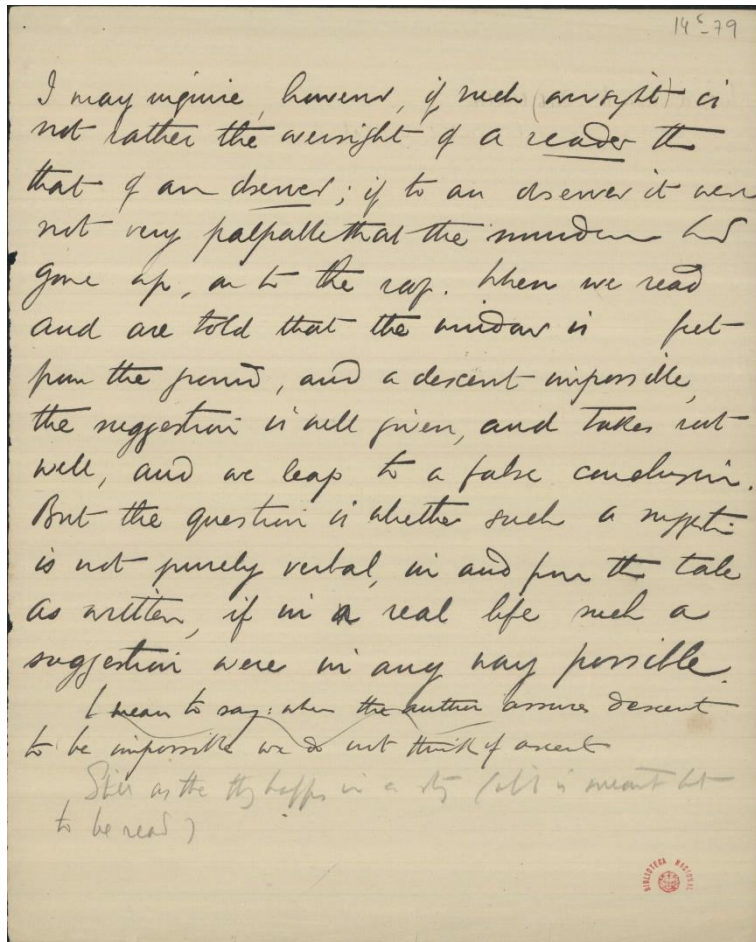 14⁶-79
I may inquire, however, if such (oversight) is
not rather the oversight of a reader th
that of an observer; if to an observer it were
not very palpable that the murderer had
gone up, on to the roof. When we read
and are told that the window is feet
from the ground, and a descent impossible,
the suggestion is well given, and takes out
well, and we leap to a false conclusion.
But the question is whether such a suggestion
is not purely verbal, in and from the tale
as written, if in real life such a
suggestion were in any way possible.
I mean to say: when the author assures descent
to be impossible we do not think of ascent
Still as the thg happs in a sty (wh is meant but
to be read)
BIBLIOTECA NACIONAL